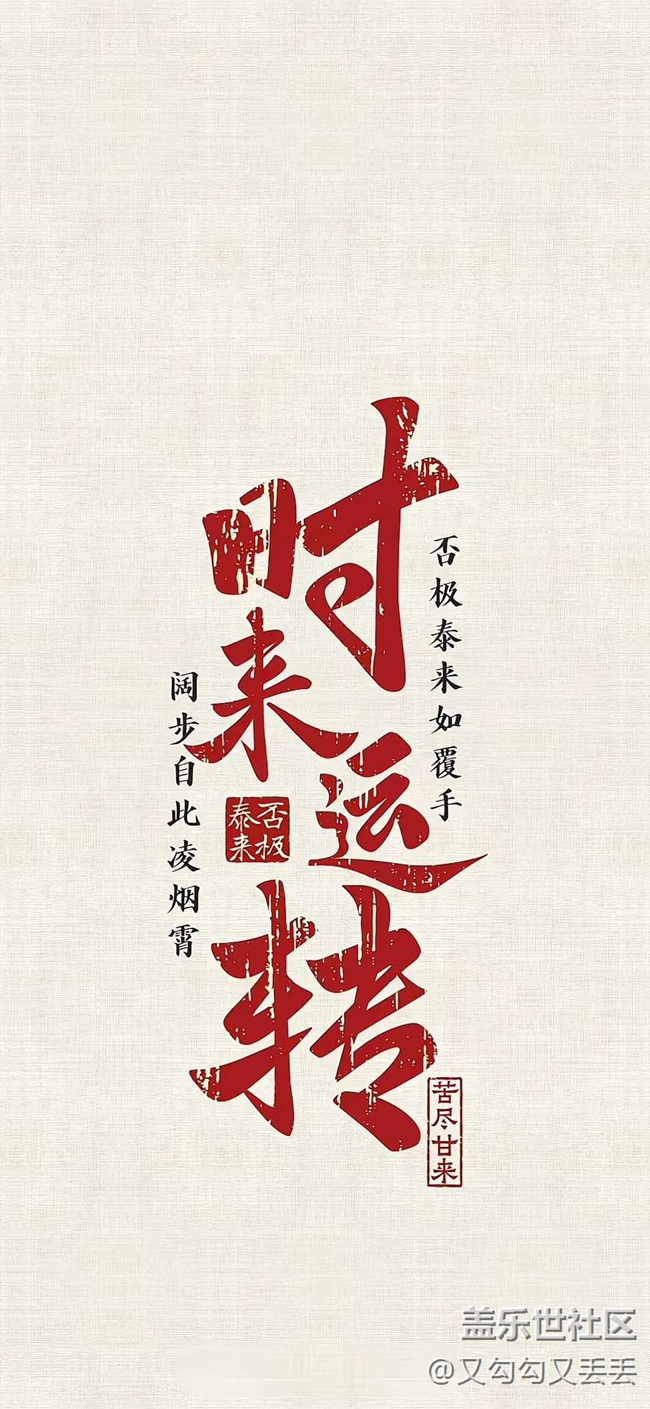 时来运转
否极泰来如覆手
阔步自此凌烟霄
否极
泰来
苦尽甘来
盖乐世社区
@又勾勾又丢丢